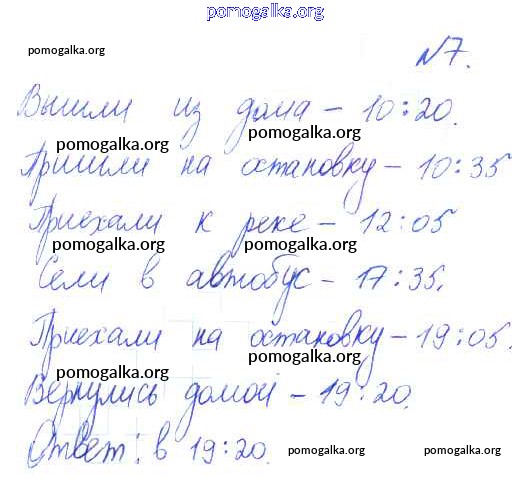 pomogalka.org
pomogalka.org pomogalka.org
№7.
Вышли из дома – 10:20.
pomogalka.org
Пришли на остановку – 10:35
pomogalka.org pomogalka.org
Приехали к реке – 12:05
pomogalka.org pomogalka.org
Сели в автобус – 17:35.
pomogalka.org
Приехали на остановку – 19:05.
pomogalka.org pomogalka.org
Вернулись домой – 19:20.
Ответ: в 19:20.
pomogalka.org pomogalka.org